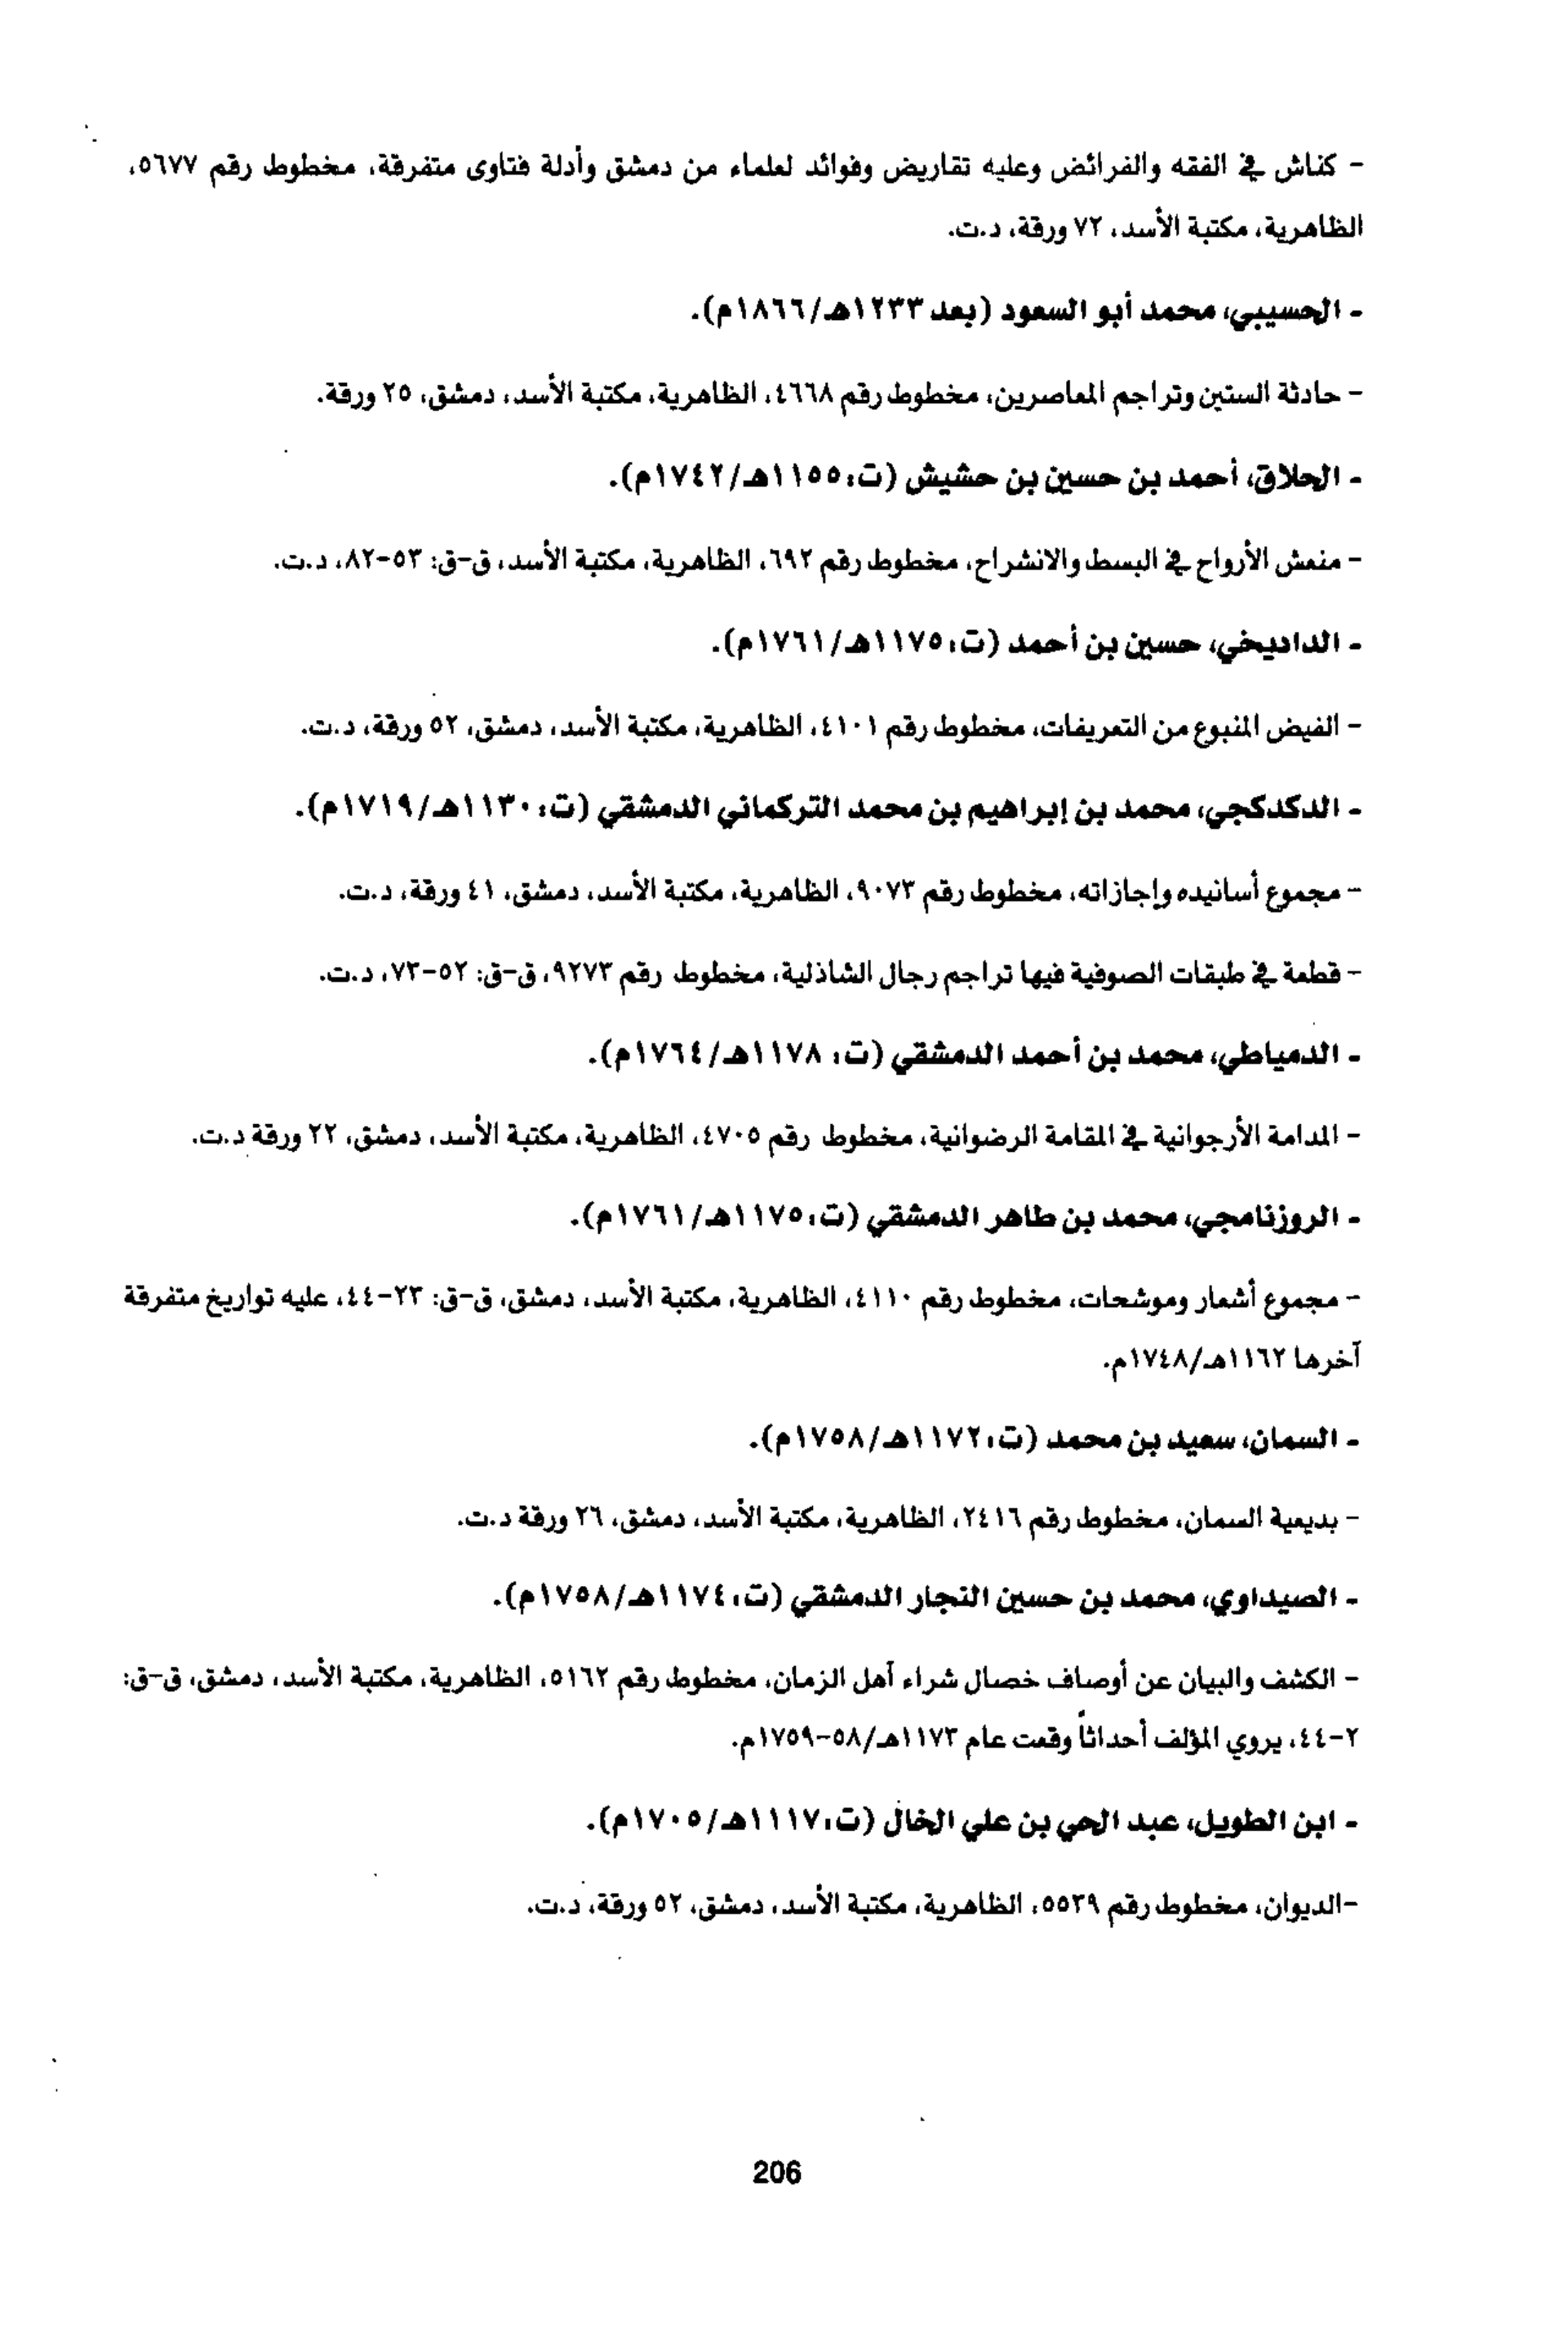 - كناش في الفقه والفرائض وعليه تقاريض وفوائد لعلماء من دمشق وأدلة فتاوى متفرقة، مخطوط رقم ٥٦٧٧،
الظاهرية، مكتبة الأسد، ٧٢ ورقة، د.ت.
- الحسيبي، محمد أبو السعود (بعد ١٢٣٣هـ/١٨٦٦م).
- حادثة الستين وتراجم المعاصرين، مخطوط رقم ٤٦٦٨، الظاهرية، مكتبة الأسد، دمشق، ٢٥ ورقة.
- الحلاق، أحمد بن حسين بن حشيش (ت: ١١٥٥هـ/١٧٤٢م).
- منعش الأرواح في البسط والانشراح، مخطوط رقم ٦٩٢، الظاهرية، مكتبة الأسد، ق-ق: ٥٣-٨٢، د.ت.
- الداديخي، حسين بن أحمد (ت: ١١٧٥هـ/١٧٦١م).
- الفيض المنبوع من التعريفات، مخطوط رقم ٤١٠١، الظاهرية، مكتبة الأسد، دمشق، ٥٢ ورقة، د.ت.
- الدكدكجي، محمد بن إبراهيم بن محمد التركماني الدمشقي (ت: ١١٣٠هـ/١٧١٩م).
- مجموع أسانيده وإجازاته، مخطوط رقم ٩٠٧٣، الظاهرية، مكتبة الأسد، دمشق، ٤١ ورقة، د.ت.
- قطعة في طبقات الصوفية فيها تراجم رجال الشاذلية، مخطوط رقم ٩٢٧٣، ق-ق: ٥٢-٧٣، د.ت.
- الدمياطي، محمد بن أحمد الدمشقي (ت: ١١٧٨هـ/١٧٦٤م).
- المدامة الأرجوانية في المقامة الرضوانية، مخطوط رقم ٤٧٠٥، الظاهرية، مكتبة الأسد، دمشق، ٢٢ ورقة د.ت.
- الروزنامجي، محمد بن طاهر الدمشقي (ت: ١١٧٥هـ/١٧٦١م).
- مجموع أشعار وموشحات، مخطوط رقم ٤١١٠، الظاهرية، مكتبة الأسد، دمشق، ق-ق: ٢٣-٤٤، عليه تواريخ متفرقة
آخرها ١١٦٢هـ/١٧٤٨م.
- السمان، سعيد بن محمد (ت: ١١٧٢هـ/١٧٥٨م).
- بديعية السمان، مخطوط رقم ٢٤١٦، الظاهرية، مكتبة الأسد، دمشق، ٢٦ ورقة د.ت.
- الصيداوي، محمد بن حسين النجار الدمشقي (ت: ١١٧٤هـ/١٧٥٨م).
- الكشف والبيان عن أوصاف خصال شراء أهل الزمان، مخطوط رقم ٥١٦٢، الظاهرية، مكتبة الأسد، دمشق، ق-ق:
٢-٤٤، يروي المؤلف أحداثاً وقعت عام ١١٧٣هـ/٥٨-١٧٥٩م.
- ابن الطويل، عبد الحي بن علي الخال (ت: ١١١٧هـ/١٧٠٥م).
-الديوان، مخطوط رقم ٥٥٣٩، الظاهرية، مكتبة الأسد، دمشق، ٥٢ ورقة، د.ت.
206